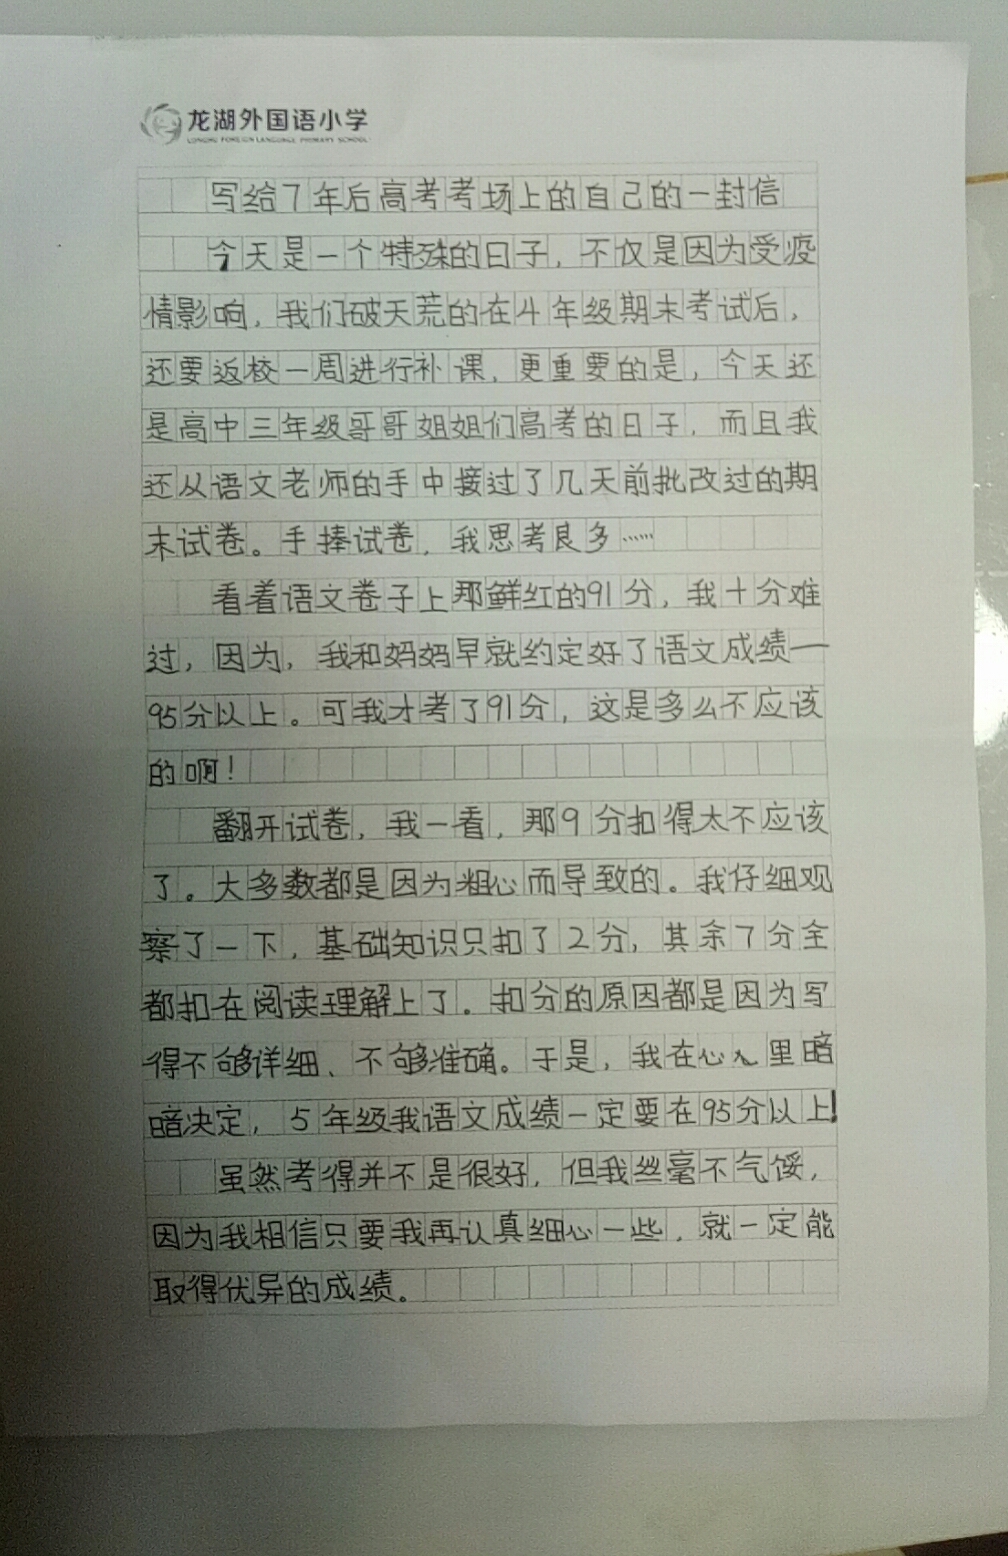 龙湖外国语小学
LONGHU FOREIGN LANGUAGE PRIMARY SCHOOL
写给7年后高考考场上的自己的一封信
今天是一个特殊的日子，不仅是因为受疫
情影响，我们破天荒的在4年级期末考试后，
还要返校一周进行补课，更重要的是，今天还
是高中三年级哥哥姐姐们高考的日子，而且我
还从语文老师的手中接过了几天前批改过的期
末试卷。手捧试卷，我思考良多……
看着语文卷子上那鲜红的91分，我十分难
过，因为，我和妈妈早就约定好了语文成绩——
95分以上。可我才考了91分，这是多么不应该
的啊！
翻开试卷，我一看，那9分扣得太不应该
了。大多数都是因为粗心而导致的。我仔细观
察了一下，基础知识只扣了2分，其余7分全
都扣在阅读理解上了。扣分的原因都是因为写
得不够详细、不够准确。于是，我在心里暗
暗决定，5年级我语文成绩一定要在95分以上！
虽然考得并不是很好，但我丝毫不气馁，
因为我相信只要我再认真细心一些，就一定能
取得优异的成绩。